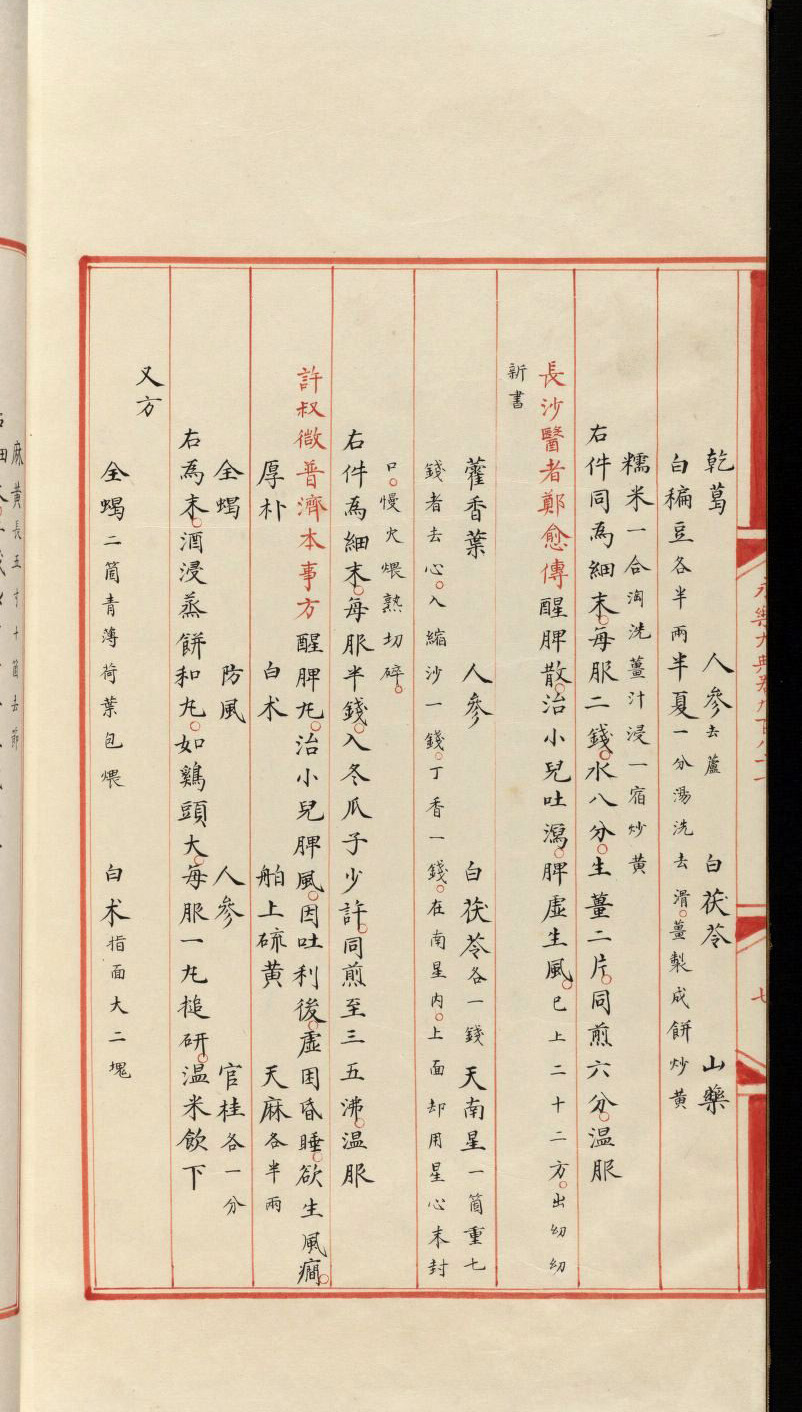 乾葛 人參去蘆 白茯苓 山藥
白稨豆各半兩半夏一分湯洗去滑。薑製成餅炒黃
糯米一合淘洗薑汁浸一宿炒黃
右件同爲細末。每服二錢。水八分。生薑二片。同煎六分。溫服
長沙醫者鄭愈傳醒脾散。治小兒吐瀉。脾虛生風。已上二十二方。出幼幼
新書
藿香葉 人參 白茯苓各一錢 天南星一箇重七
錢者去心。入縮沙一錢。丁香一錢。在南星內。上面却用星心末封
口。慢火煨熟切碎。
右件爲細末。每服半錢。入冬瓜子少許。同煎至三五沸。溫服
許叔微普濟本事方醒脾丸。治小兒脾風。因吐利後。虛困昏睡。欲生風癎。
厚朴 白术 舶上硫黃 天麻各半兩
全蝎 防風 人參 官桂各一分
右爲末。酒浸蒸餅和丸。如鷄頭大。每服一丸槌研。溫米飲下
又方
全蝎二箇青薄荷葉包煨 白术指面大二塊
麻黃長五寸十箇去節